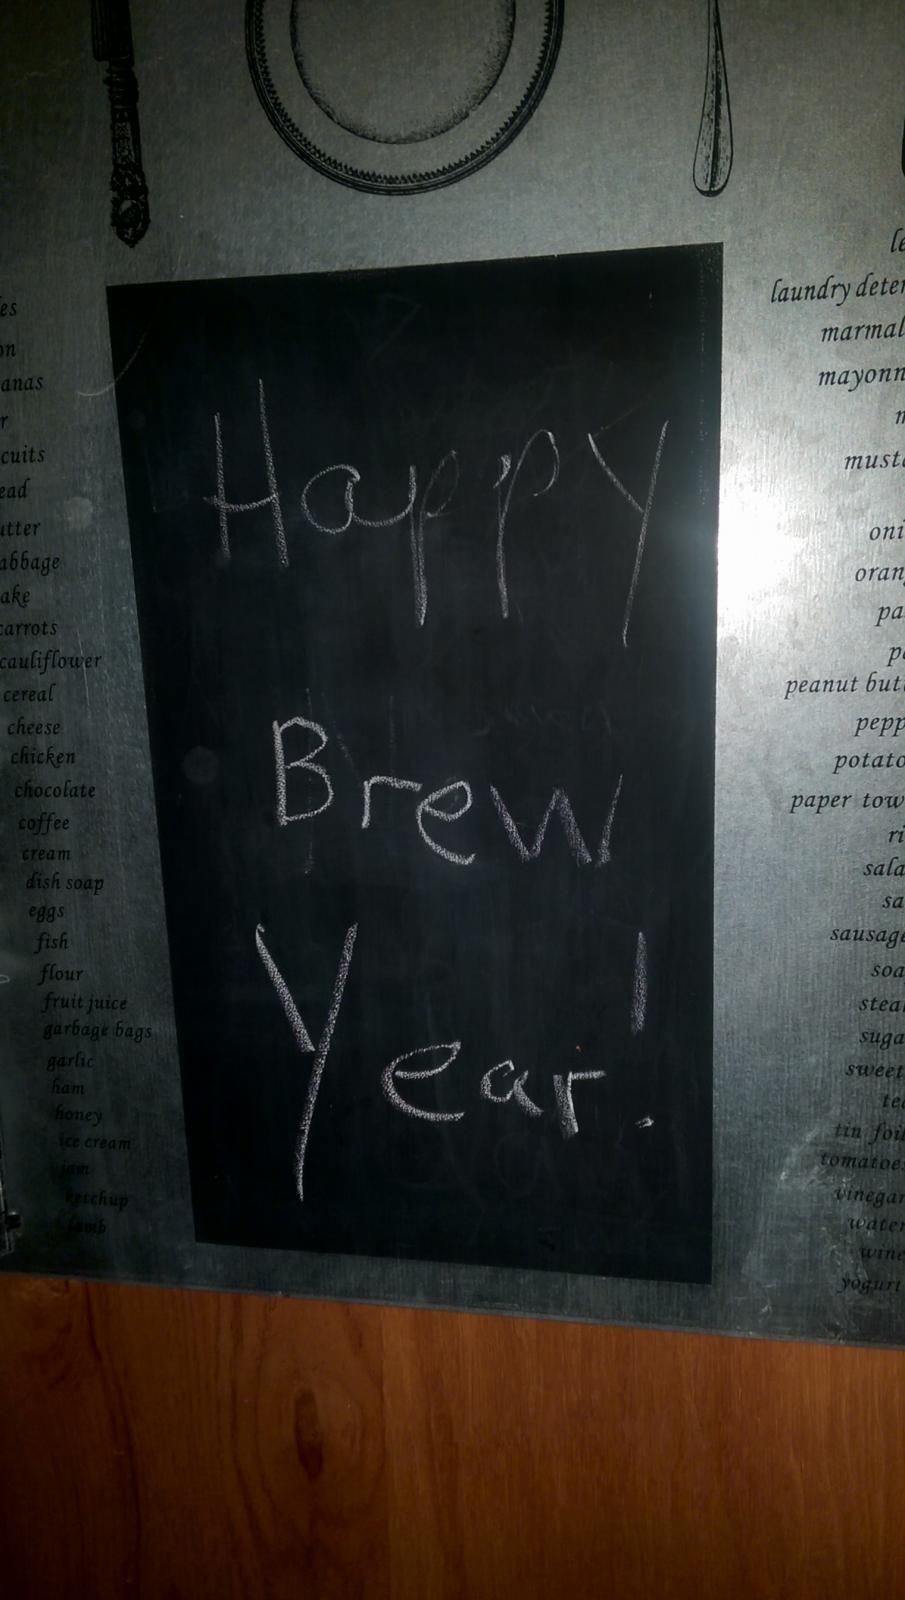 Happy
Brew
Year!
cauliflower
cereal
cheese
chicken
chocolate
coffee
cream
dish soap
eggs
fish
flour
fruit juice
garbage bags
garlic
ham
honey
ice cream
jam
ketchup
lamb
laundry deter
marmal
mayonn
musta
oni
oran
pa
peanut but
pepp
potato
paper tow
ri
sala
sa
sausage
soa
steak
suga
sweet
tea
tin foil
tomatoes
vinegar
water
wine
yogurt